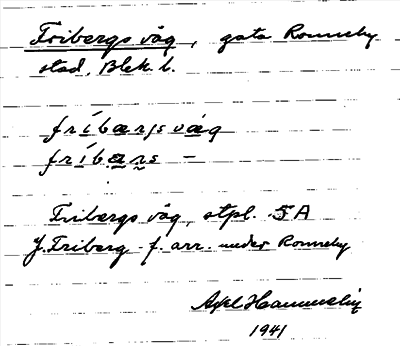 Fribergs väg, gata Ronneby
stad, Blek. l.
fríbærjs vág
fríbærs –
Fribergs väg, stpl. 5 A
J. Friberg - f. arr. under Ronneby
Axel
1941